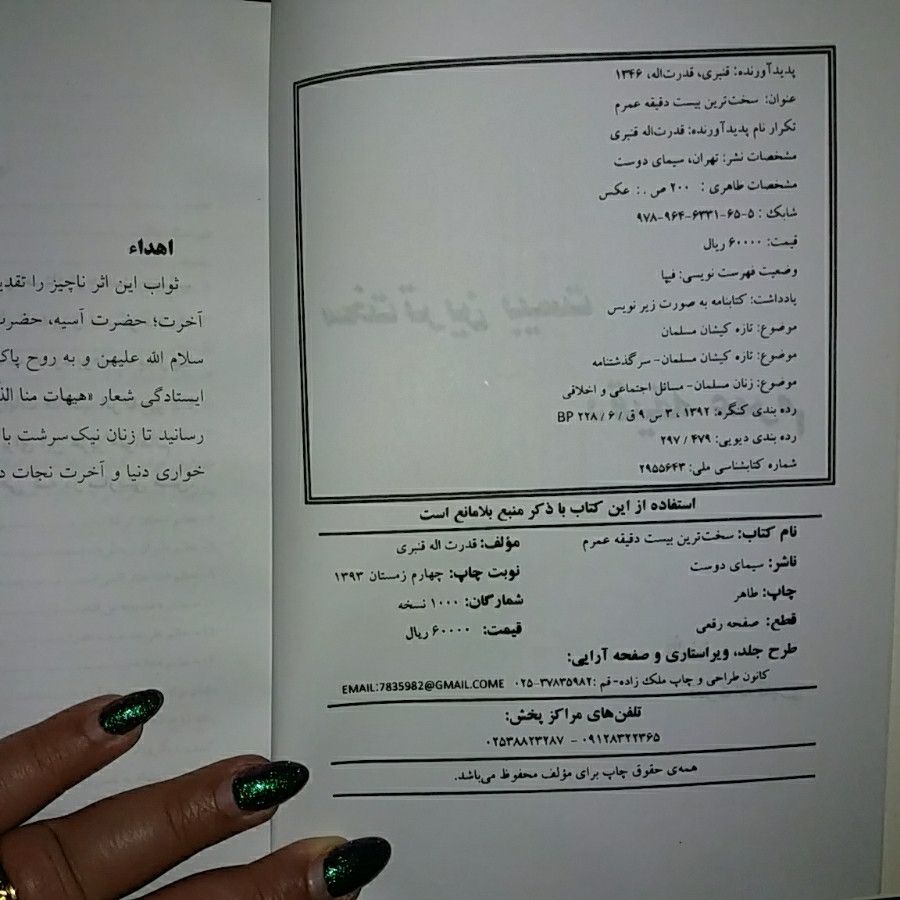 پدیدآورنده: قنبری، قدرت‌اله، ۱۳۴۶
عنوان: سخت‌ترین بیست دقیقه عمرم
تکرار نام پدیدآورنده: قدرت‌اله قنبری
مشخصات نشر: تهران، سیمای دوست
مشخصات ظاهری : ۲۰۰ ص . : عکس
شابک : ۵-۶۵-۶۳۳۱-۹۶۴-۹۷۸
قیمت: ۶۰۰۰۰ ریال
وضعیت فهرست نویسی: فیپا
یادداشت: کتابنامه به صورت زیر نویس
موضوع: تازه کیشان مسلمان
موضوع: تازه کیشان مسلمان- سرگذشتنامه
موضوع: زنان مسلمان- مسائل اجتماعی و اخلاقی
رده بندی کنگره: ۱۳۹۲ ، ۳ س ۹ ق / ۶ / ۲۲۸ BP
رده بندی دیویی: ۴۷۹ / ۲۹۷
شماره کتابشناسی ملی: ۲۹۵۵۶۴۳
استفاده از این کتاب با ذکر منبع بلامانع است
نام کتاب: سخت‌ترین بیست دقیقه عمرم مؤلف: قدرت اله قنبری
ناشر: سیمای دوست نوبت چاپ: چهارم زمستان ۱۳۹۳
چاپ: طاهر شمارگان: ۱۰۰۰ نسخه
قطع: صفحه رقعی قیمت: ۶۰۰۰۰ ریال
طرح جلد، ویراستاری و صفحه آرایی:
کانون طراحی و چاپ ملک زاده- قم :۳۷۸۳۵۹۸۲-۰۲۵ EMAIL:7835982@GMAIL.COME
تلفن‌های مراکز پخش:
۰۹۱۲۸۳۲۲۳۶۵ - ۰۲۵۳۸۸۲۳۲۸۷
همه‌ی حقوق چاپ برای مؤلف محفوظ می‌باشد.
اهداء
ثواب این اثر ناچیز را
آخرت؛ حضرت آسیه،
سلام الله علیهن و به روح
ایستادگی شعار «هیهات منا
رسانید تا زنان نیک‌سرشت با
خواری دنیا و آخرت نجات